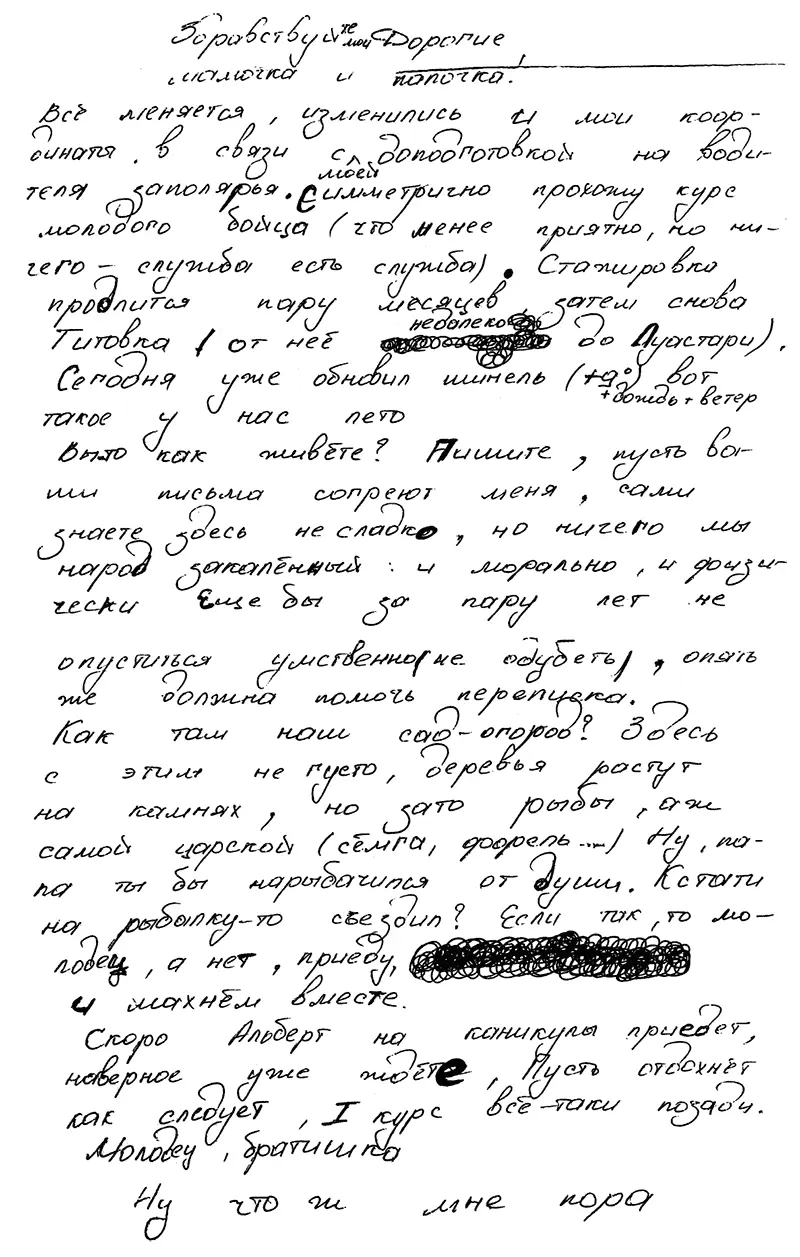 Здравствуйте мои Дорогие,
мамочка и папочка.
Всё меняется, изменились и мои коор-
динаты, в связи с моей доподготовкой на води-
теля заполярья. Симметрично прохожу курс
молодого бойца (что менее приятно, но ни-
чего - служба есть служба). Стажировка
продлится пару месяцев, затем снова
Титовка (от неё недалеко до Луастари).
Сегодня уже обновил шинель (+9°) вот
+дождь+ветер
такое у нас лето
Было как живёте? Пишите, пусть ва-
ши письма согреют меня, сами
знаете здесь не сладко, но ничего мы
народ закалённый: и морально, и физи-
чески Еще бы за пару лет не
опуститься умственно (не одубеть), опять
же должна помочь переписка.
Как там наш сад-огород? Здесь
с этим не густо, деревья растут
на камнях, но зато рыбы, аж
самой царской (сёмга, форель...) Ну, па-
па ты бы нарыбачился от души. Кстати
на рыбалку-то съездил? Если так, то мо-
лодец, а нет, приеду,
и махнём вместе.
Скоро Альберт на каникулы приедет,
наверное уже ждёте, Пусть отдохнёт
как следует, I курс всё-таки позади.
Молодец, братишка
Ну что ж мне пора